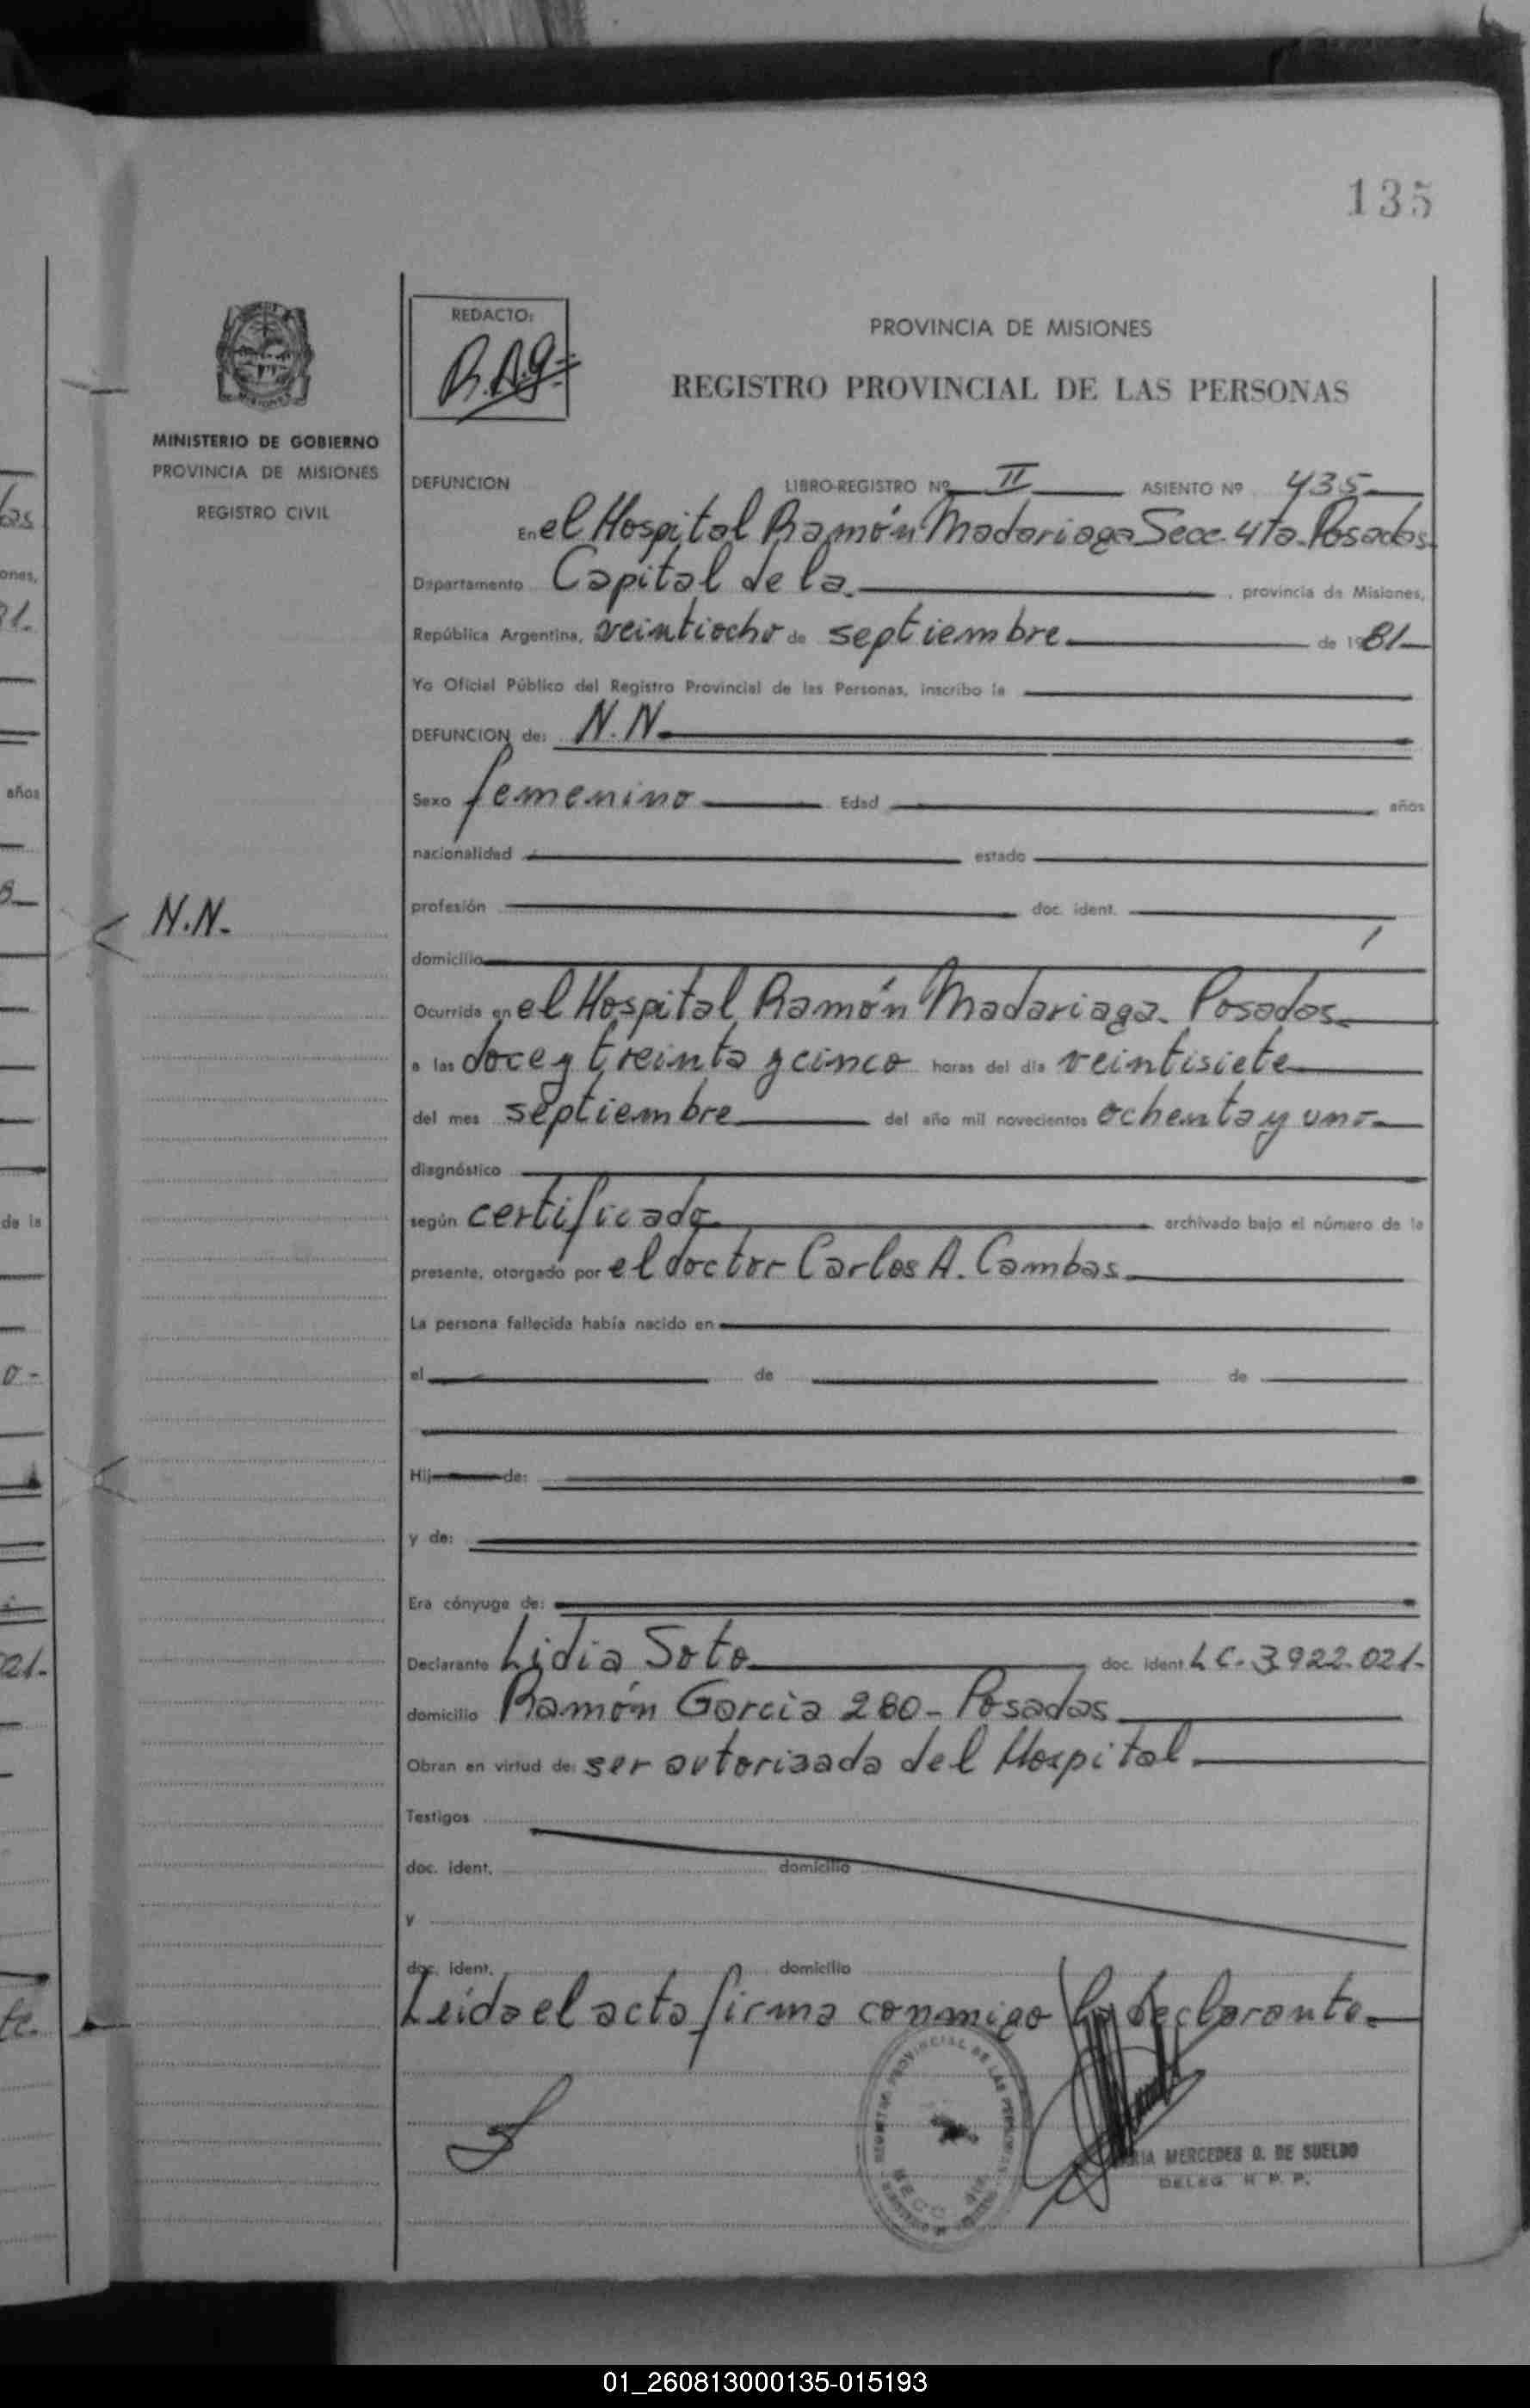 135
REDACTO:
B.A.G.
PROVINCIA DE MISIONES
REGISTRO PROVINCIAL DE LAS PERSONAS
MINISTERIO DE GOBIERNO
PROVINCIA DE MISIONES
REGISTRO CIVIL
N.N.
DEFUNCION LIBRO-REGISTRO Nº II ASIENTO Nº 435
En el Hospital Ramón Madariaga Secc. 4ta. Posadas
Departamento Capital de la. , provincia de Misiones,
República Argentina, veintiocho de septiembre de 1981
Yo Oficial Público del Registro Provincial de las Personas, inscribo la
DEFUNCION de: N.N.
Sexo femenino Edad años
nacionalidad estado
profesión doc. ident.
domicilio
Ocurrida en el Hospital Ramón Madariaga. Posadas.
a las doce y treinta y cinco horas del día veintisiete
del mes septiembre del año mil novecientos ochenta y uno
diagnóstico
según certificado archivado bajo el número de la
presente, otorgado por el doctor Carlos A. Cambas.
La persona fallecida había nacido en
el de de
Hij de:
y de:
Era cónyuge de:
Declarante Lidia Soto doc. ident. L C. 3.922.021.
domicilio Ramón Garcia 280 - Posadas
Obran en virtud de: ser autorizada del Hospital.
Testigos
doc. ident. domicilio
y
doc. ident. domicilio
Leida el acta firma conmigo la declarante.
REGISTRO PROVINCIAL DE LAS PERSONAS
MERCEDES D. DE SUELDO
DELEG. R. P. P.
años
de la
01_260813000135-015193